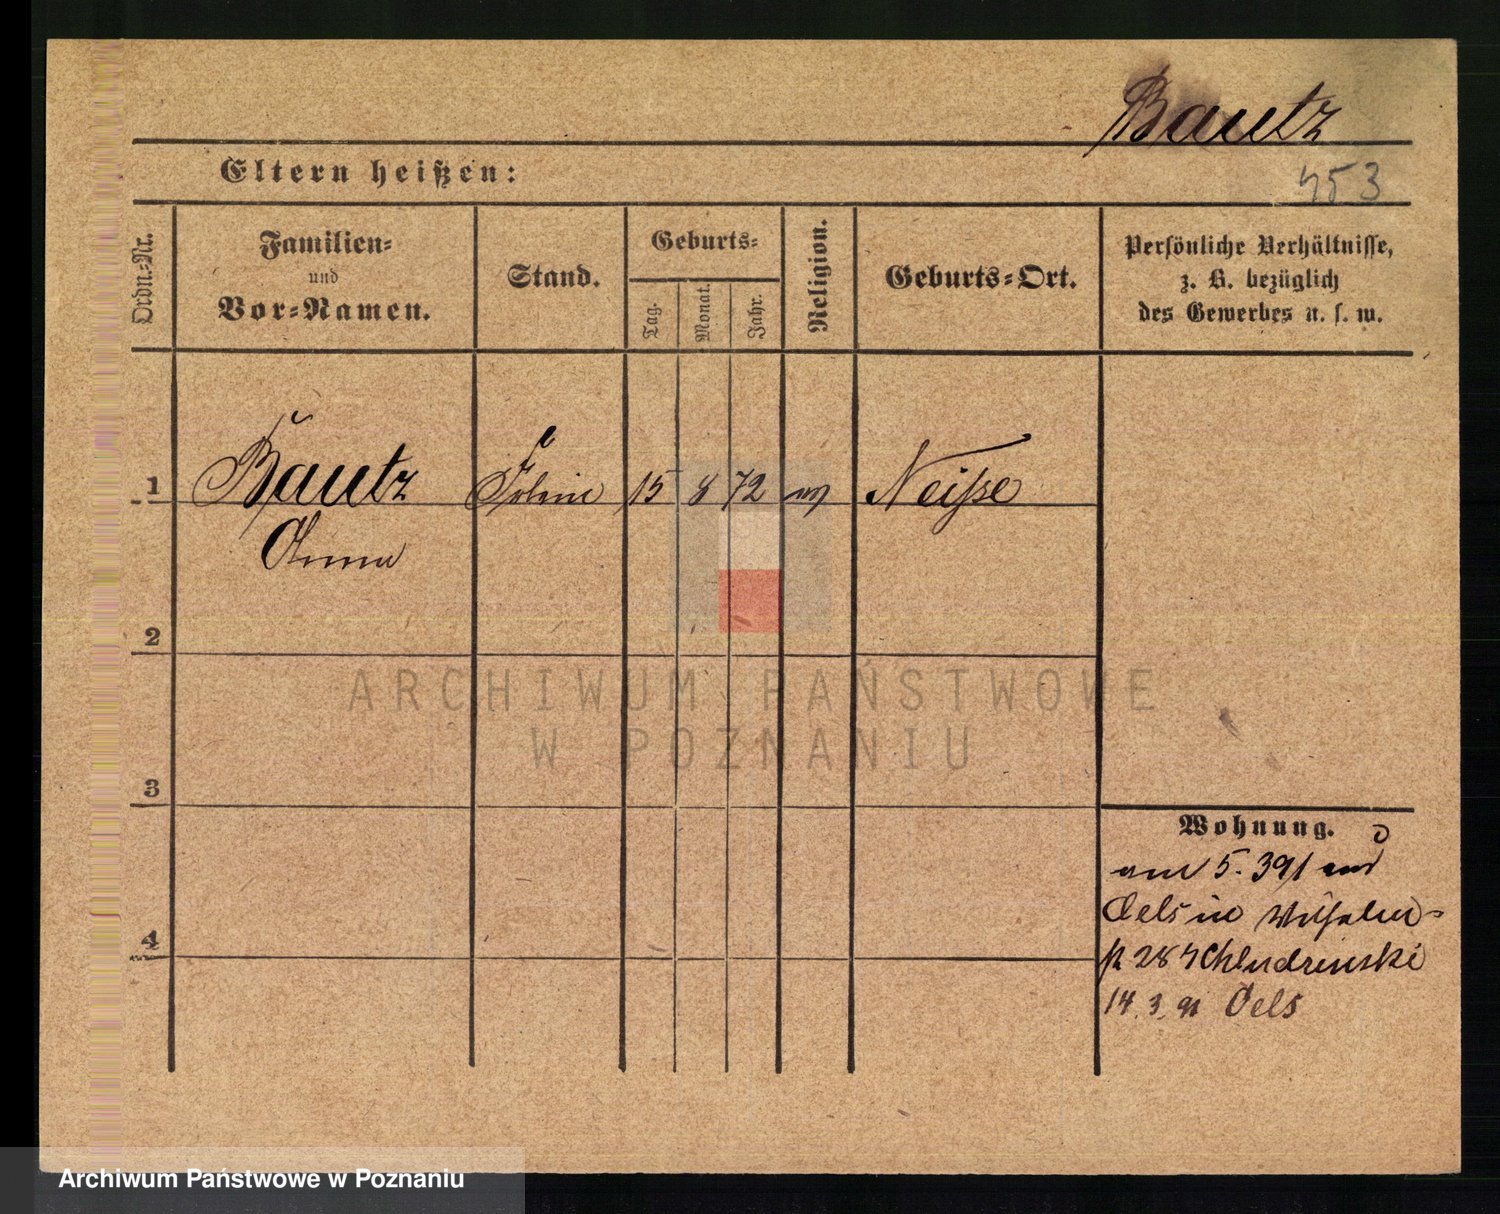 Bautz
Eltern heißen:
453
Ordn.-Nr.
Familien-
und
Vor-Namen.
Stand.
Geburts-
Tag.
Monat.
Jahr.
Religion.
Geburts-Ort.
Persönliche Verhältnisse,
z. B. bezüglich
des Gewerbes u. s. w.
1 Bautz 15 8 72 Neiße
Anna
2
3
4
Wohnung.
am 5. 3 91 aus
Oels in Wilhelm-
st 28
14. 3. 91 Oels
ARCHIWUM PAŃSTWOWE
W POZNANIU
Archiwum Państwowe w Poznaniu